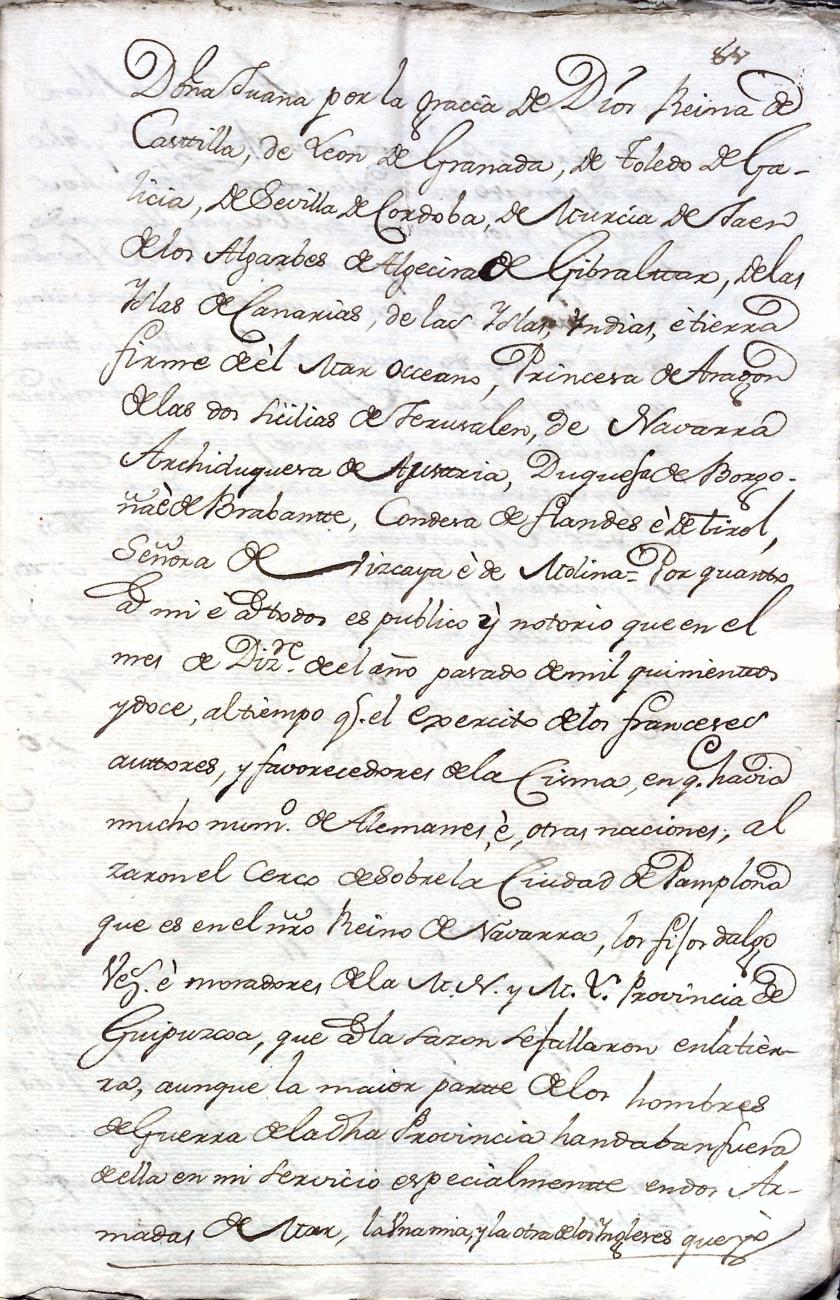 88
Doña Juana por la gracia de Dios Reina de
Casttilla, de Leon de Granada, de Toledo de Ga-
licia, de Sevilla de Cordoba, de Murcia de Jaen
de los Algarbes de Algecira de Gibralttar, de las
Yslas de Canarias, de las Yslas, Yndias, è tierra
firme de èl Mar occeano, Princesa de Aragon
de las dos Sicilias de Jerusalen, de Navarra
Archiduquesa de Austria, Duquesa de Borgo-
ña è de Brabantte, Condesa de flandes è de Tirol,
Señora de Vizcaya è de Molina= Por quanto
ad mi è ad todos es publico ÿ notorio que en el
mes de Diz.re de el año pasado de mil quinienttos
y doce, al tiempo q.e el exercito de los franceses
auttores, y favorecedores de la Cisma, en q.e havia
mucho num.o de Alemanes, è, otras naciones, al
zaron el Cerco de sobre la Ciudad de Pamplona
que es en el nr̃o Reino de Navarra, los fijos dalgo
Vez.s è moradores de la M. N. y M. L. Provincia de
Guipuzcoa, que ad la sazon se fallaron en la tier-
ra, aunque la maior partte de los hombres
de Guerra de la dha Provincia handaban fuera
de ella en mi servicio especialmentte en dos Ar-
madas de Mar, la Vna mia, y la otra de los Yngleses que yò